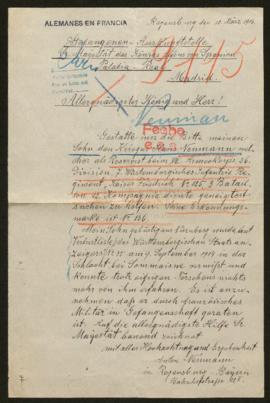 ALEMANES EN FRANCIA
Regensburg den 18. März 1915
Gefangenen-Auskunftstelle
Sr. Majestät des Königs Alfons von Spanien
Palacio Real
Madrid.
9115
Allergnädigster König und Herr!
Neumann
Gestatte mir die Bitte meinen
Fecha
Sohn den Krieger Hans Neumann wel-
cher als Reservist beim XIII. Armeekorps 26.
Division, 7. Württembergisches Infanterie Re-
giment, Kaiser Friedrich Nr. 125, 3. Batail-
lon, 12. Kompagnie diente geneigtest
suchen zu helfen. Seine Erkennungs-
marke ist Nr. 136.
Mein Sohn gebürtig aus Nürnberg wurde laut
Verlustliste des Württembergischen Staats-an-
zeigers vom September 1914 in der
Schlacht bei Sommaisne vermißt und
konnte trotz eifrigen Forschens nichts
mehr von ihm erfahren. Es ist anzu-
nehmen daß er durch französisches
Militär in Gefangenschaft geraten
ist. Auf die allergnädigste Hilfe Sr.
Majestät bauend zeichnet
mit aller Hochachtung und Ergebenheit
Neumann
in Regensburg - Bayern
Bahnhofstraße